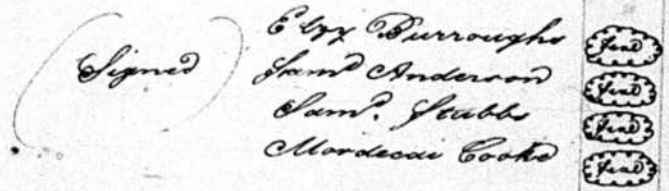 (Signed) Elzy Burroughs Seal
Sam.d Anderson Seal
Sam.l Stubbs Seal
Mordecai Cooke Seal